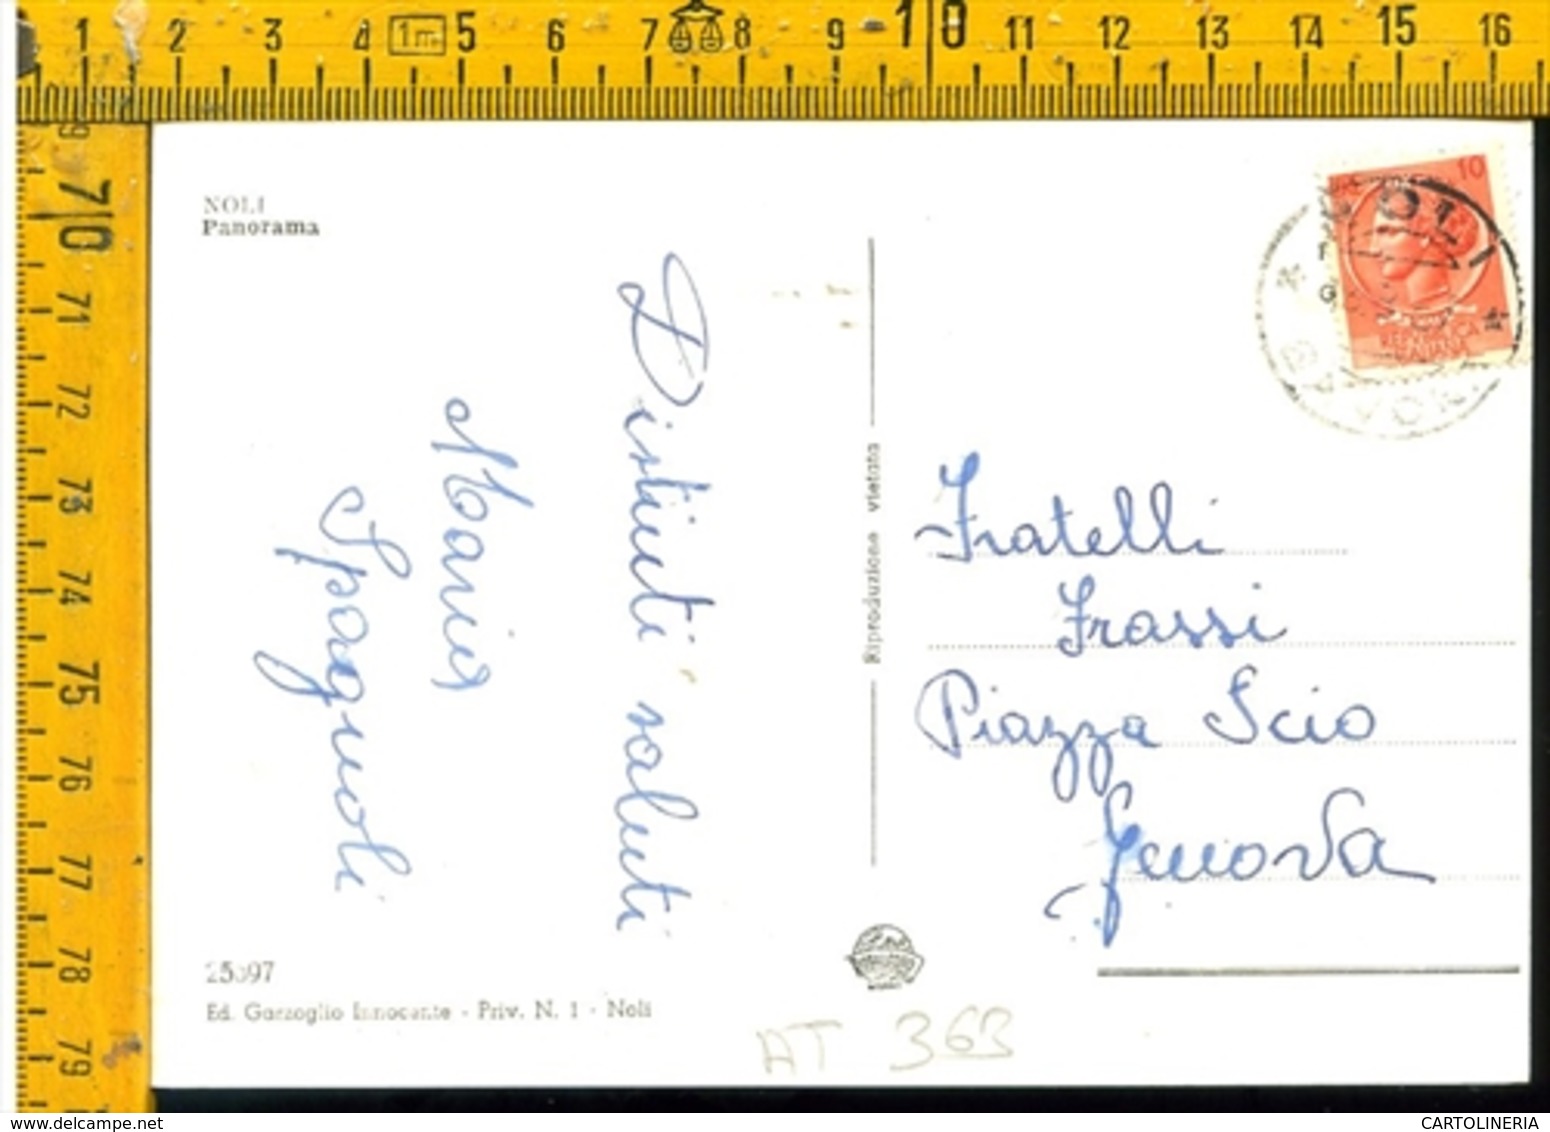 1 2 3 4 1m 5 6 7 8 9 10 11 12 13 14 15 16
70 71 72 73 74 75 76 77 78 79
NOLI
Panorama
10
NOLI
SAVONA
REPUBBLICA
ITALIANA
Distinti saluti
Maria
Spagnoli
Riproduzione vietata
Fratelli
Frassi
Piazza Scio
Genova
Ed. Garzoglio Innocente - Priv. N. 1 - Noli
AT 363
www.delcampe.net
CARTOLINERIA